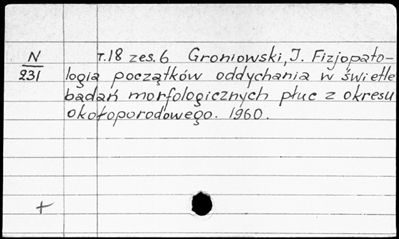 N
231
T.18 zes.6 Groniowski, J. Fizjopato-
logia początków oddychania w świetle
badań morfologicznych płuc z okresu
okołoporodowego. 1960.
+